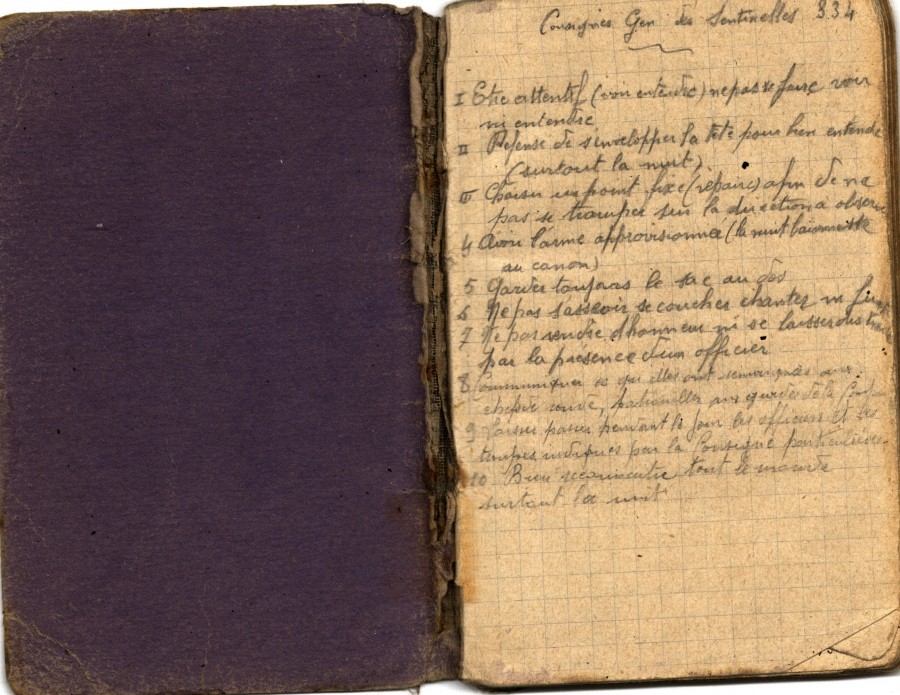 Consignes Gen des Sentinelles 334
I Etre attentif (voir entendre) ne pas se faire voir
ni entendre
II Defense de s'envelopper la tête pour bien entendre
(surtout la nuit)
III Choisir un point fixe (répaire) afin de ne
pas se tromper sur la direction a observer
4 Avoir l'arme approvisionnée (la nuit baionnette
au canon)
5 Garder toujours le sac au dos
6 Ne pas s'asseoir se coucher chanter ni fumer
7 Ne pas rendre d'honneur ni se laisser distraire
par la présence d'un officier
8 Communiquer ce qu'elles ont remarqués aux
ronde, patrouilles aux gardes de la
9 Laisser passer pendant le jour les officiers et les
troupes indiquées par la Consigne particulière
10 Bien reconnaitre tout le monde
surtout la nuit